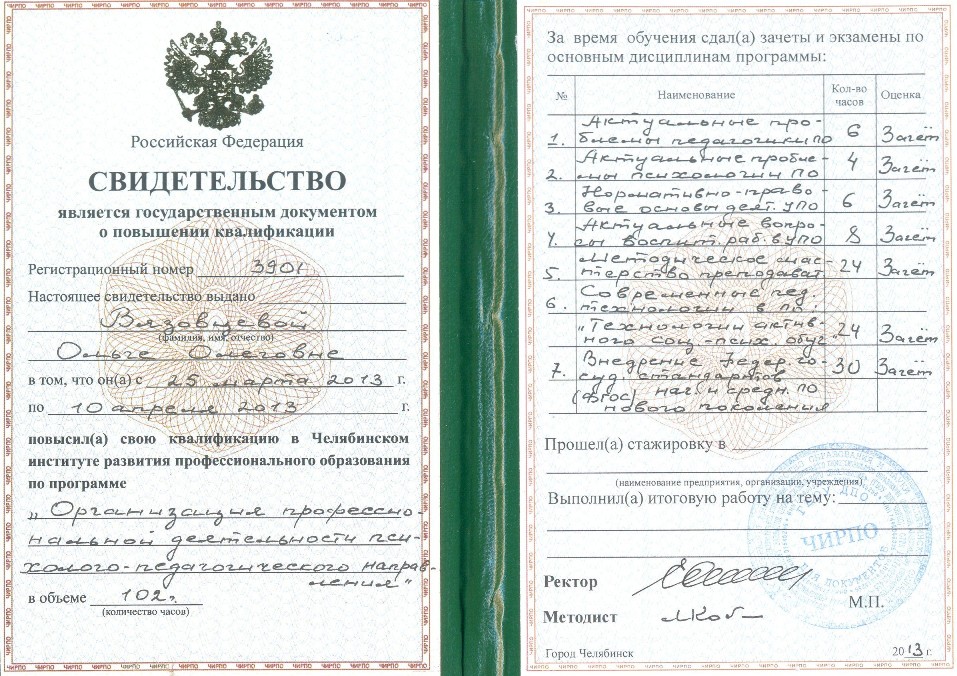 Российская Федерация
СВИДЕТЕЛЬСТВО
является государственным документом
о повышении квалификации
Регистрационный номер 3901
Настоящее свидетельство выдано
Вязовцевой
(фамилия, имя, отчество)
Ольге Олеговне
в том, что он(а) с 25 марта 2013 г.
по 10 апреля 2013 г.
повысил(а) свою квалификацию в Челябинском
институте развития профессионального образования
по программе
„Организация профессио-
нальной деятельности пси-
холого-педагогического направ-
ления"
в объеме 102 г.
(количество часов)
За время обучения сдал(а) зачеты и экзамены по
основным дисциплинам программы:
№ Наименование Кол-во часов Оценка
1. Актуальные про-
блемы педагогики ПО 6 Зачёт
2. Актуальные пробле-
мы психологии ПО 4 Зачёт
3. Нормативно-право-
вые основы деят. УПО 6 Зачёт
4. Актуальные вопро-
сы воспит. раб. в УПО 8 Зачёт
5. Методическое мас-
терство преподават 24 Зачёт
6. Современные пед.
технологии в ПО.
„Технологии актив-
ного соц-псих. обуч" 24 Зачёт
7. Внедрение Федер. го-
суд. стандартов 30 Зачёт
(ФГОС) нач. и средн. ПО
нового поколения
Прошел(а) стажировку в
(наименование предприятия, организации, учреждения)
Выполнил(а) итоговую работу на тему:
ЧИРПО
ДЛЯ ДОКУМЕНТОВ
Ректор
Методист
М.П.
Город Челябинск
2013 г.